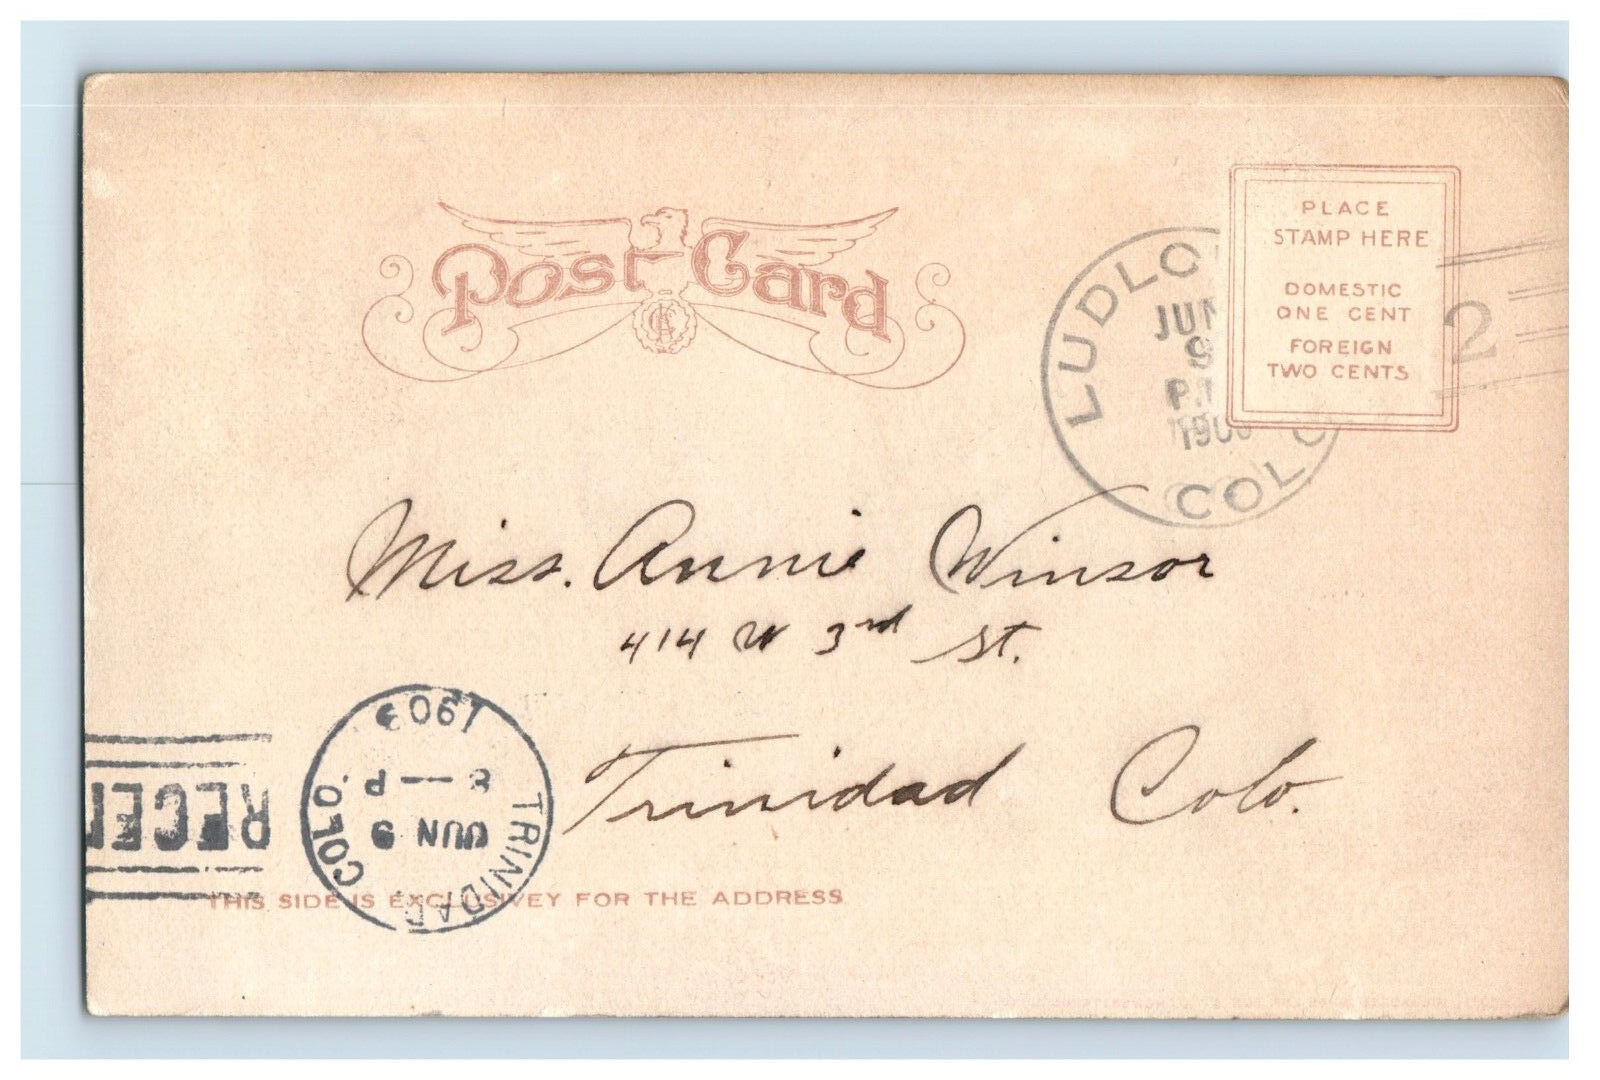 Post Card
PLACE
STAMP HERE
DOMESTIC
ONE CENT
FOREIGN
TWO CENTS
LUDLO
JUN
9
P.
190
COLO
2
Miss. Annie Winsor
414 W 3rd St.
Trinidad Colo.
TRINIDAD COLO.
JUN 9
8 — P
190
RECEI
THIS SIDE IS EXCLUSIVEY FOR THE ADDRESS